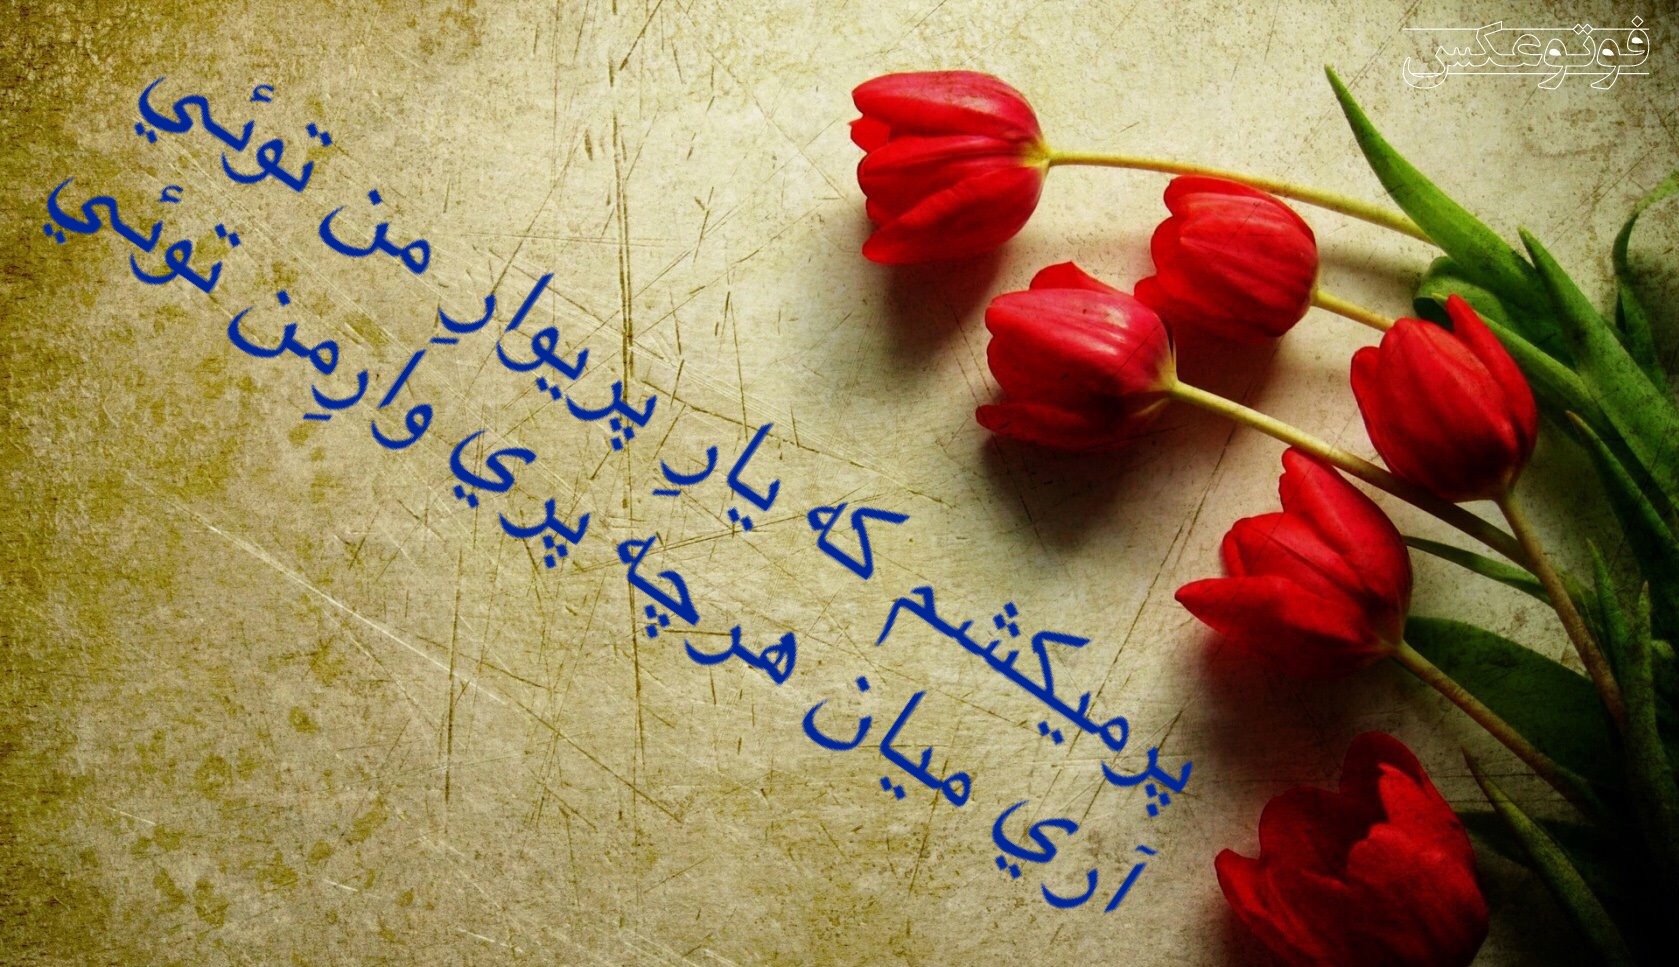 فوتوعکس
پرميکشم که يارِ پريوارِ من توئي
آري ميان هرچه پري وارِمن توئي